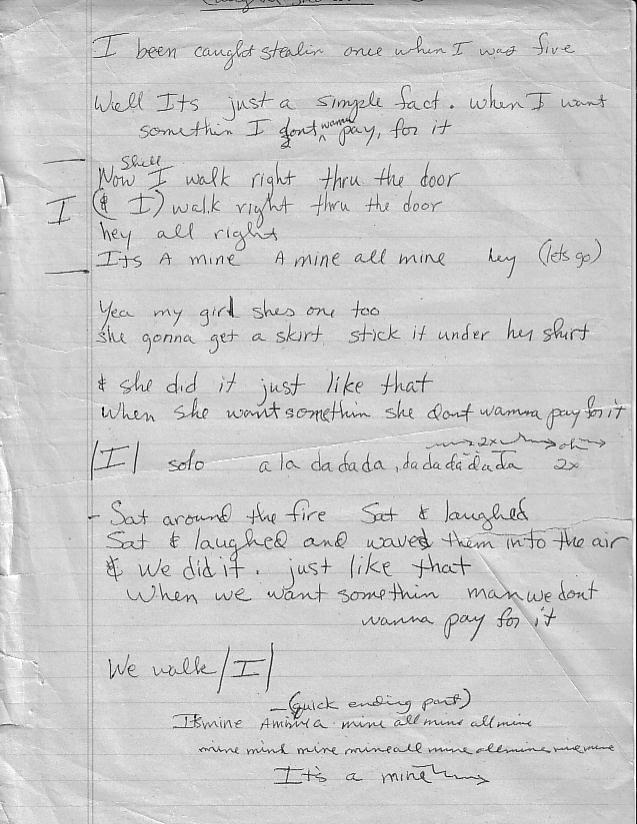 I been caught stealin once when I was five
Well Its just a simple fact. when I want
somethin I dont wanna pay, for it
Shell
Now I walk right thru the door
I (& I) walk right thru the door
hey all right
Its A mine A mine all mine hey (lets go)
Yea my girl shes one too
she gonna get a skirt stick it under her shirt
& she did it just like that
When she want somethin she dont wanna pay for it
|I| solo a la da da da, da da da da da 2x
2x
- Sat around the fire Sat & laughed
Sat & laughed and waved them into the air
& we did it. just like that
When we want somethin man we dont
wanna pay for it
We walk |I|
(quick ending part)
Its mine Amine a mine all mine all mine
mine mine mine mine all mine all mine mine mine
It's a mine